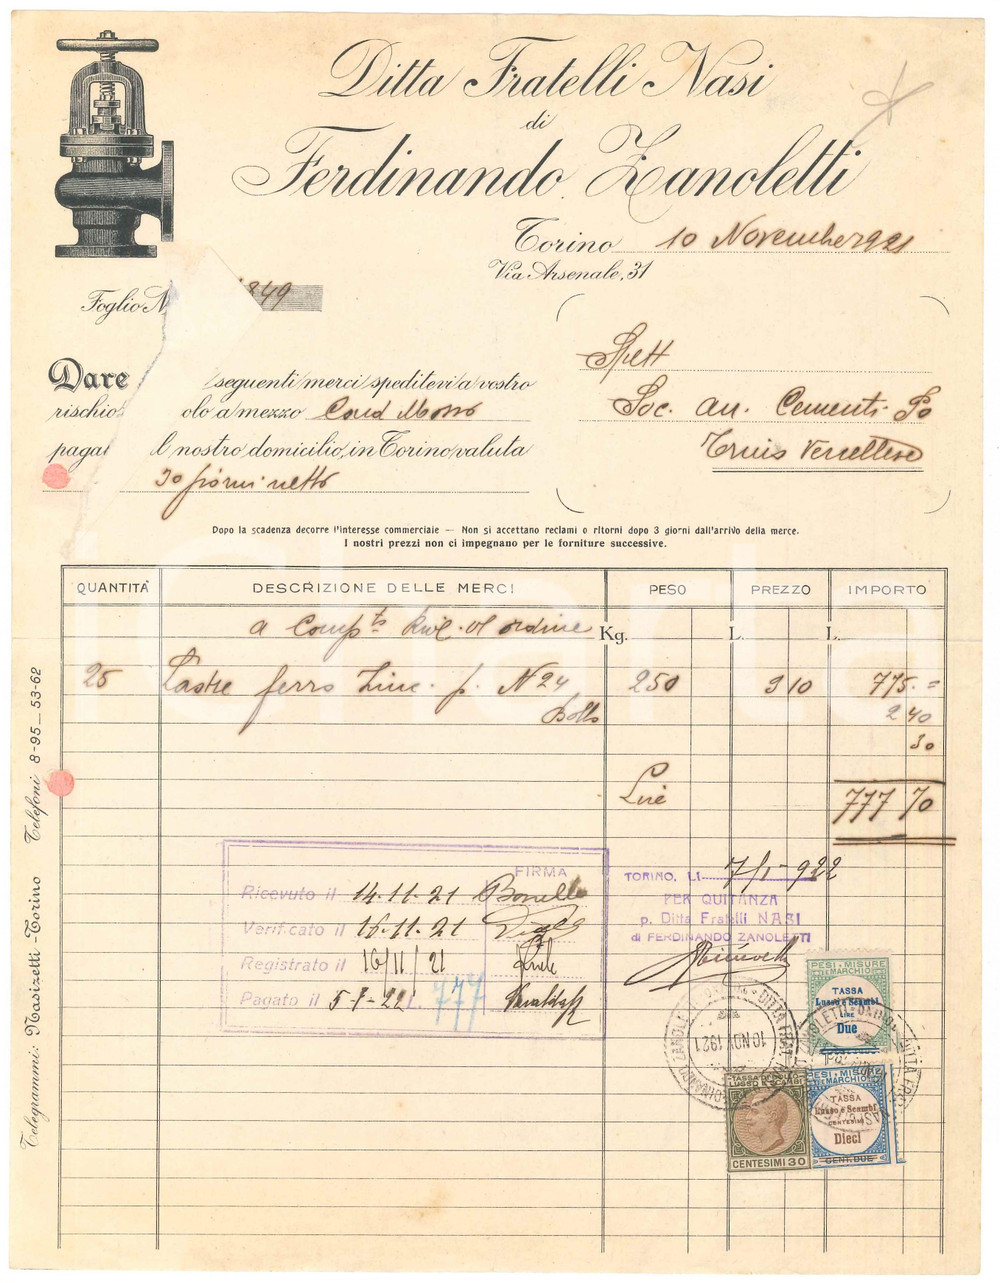 Ditta Fratelli Nasi
di
Ferdinando Zanoletti
Torino 10 Novembre 921
Via Arsenale, 31
Foglio N 849
Spett
Dare seguenti merci speditevi a vostro
rischio olo a mezzo
Soc. An. Cementi Po
pagar l nostro domicilio, in Torino valuta
Trino Vercellese
30 giorni netto
Dopo la scadenza decorre l'interesse commerciale — Non si accettano reclami o ritorni dopo 3 giorni dall'arrivo della merce.
I nostri prezzi non ci impegnano per le forniture successive.
QUANTITÀ DESCRIZIONE DELLE MERCI PESO PREZZO IMPORTO
a ordine Kg. L. L.
25 Lastre ferro Zinc. p. N 24 250 3 10 775.=
Bollo 2 40
30
Lire 777 70
Telegrammi: Nasizetti-Torino Telefoni 8-95 _ 53-62
FIRMA
Ricevuto il 14.11.21
Verificato il 16.11.21
Registrato il 16/11/21
Pagato il 5-1-22 777
TORINO, LI 7/1-922
PER QUITANZA
p. Ditta Fratelli NASI
di FERDINANDO ZANOLETTI
PESI E MISURE
E MARCHIO
TASSA
Lusso e Scambi
LIRE
Due
10 NOV 1921
TASSA DI BOLLO
LUSSO E SCAMBI
CENTESIMI 30
PESI E MISURE
E MARCHIO
TASSA
Lusso e Scambi
CENTESIMI
Dieci
CENT. DUE
iCharta